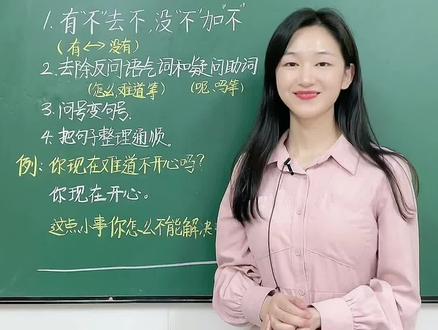 1. 有"不"去不,没"不"加"不"
(有↔没有)
2. 去除反问语气词和疑问助词
(怎么,难道等) (呢、吗等)
3. 问号变句号.
4. 把句子整理通顺.
例: 你现在难道不开心吗?
你现在开心。
这点小事你怎么不能解决